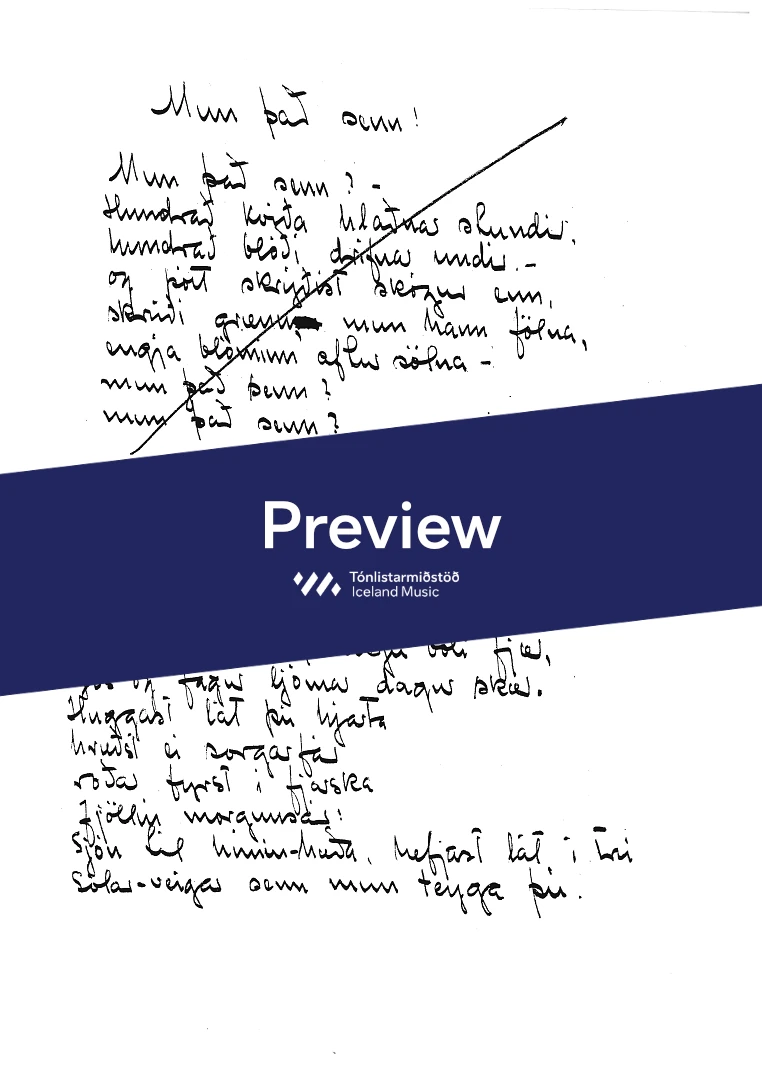 Mun það senn!
Mun það senn? -
Hundrað kvista hlaðnar stundir,
hundrað blóði drifnar undir. -
og þótt skrýðist skógur enn,
skrúði grænn, mun hann fölna,
engja blómin aftur sölna -
mun það senn?
mun það senn?
Preview
Tónlistarmiðstöð
Iceland Music
fjær,
og fagur ljómar dagur skær.
Huggast lát þú hjarta
hræðst ei sorgarfár
roðar fyrst í fjarska
fjöllin morgunsár!
Sjón til himin-hæða, hefjast lát í trú
Sólar-veigar senn mun teyga þú.